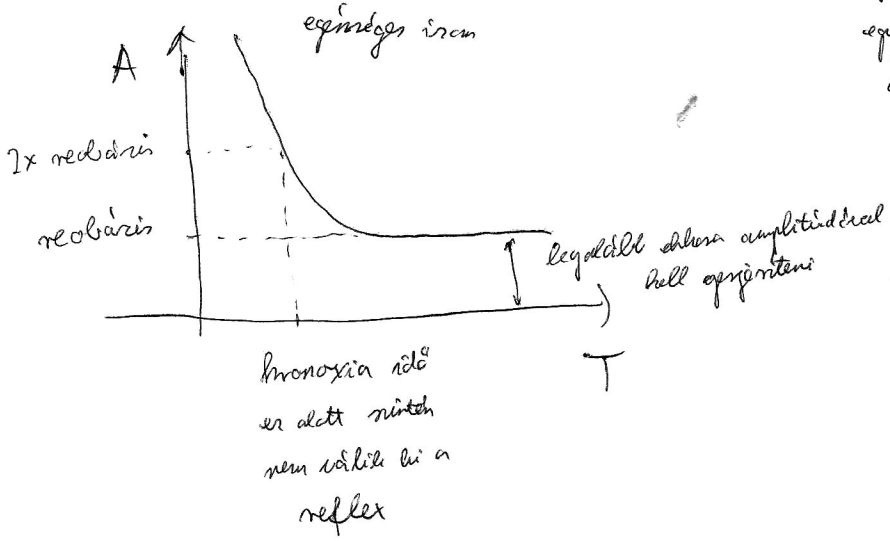 egészséges izom
A
2x reobázis
reobázis
legalább ekkora amplitúdóval
kell gerjeszteni
T
kronaxia idő
ez alatt szintén
nem válik ki a
reflex